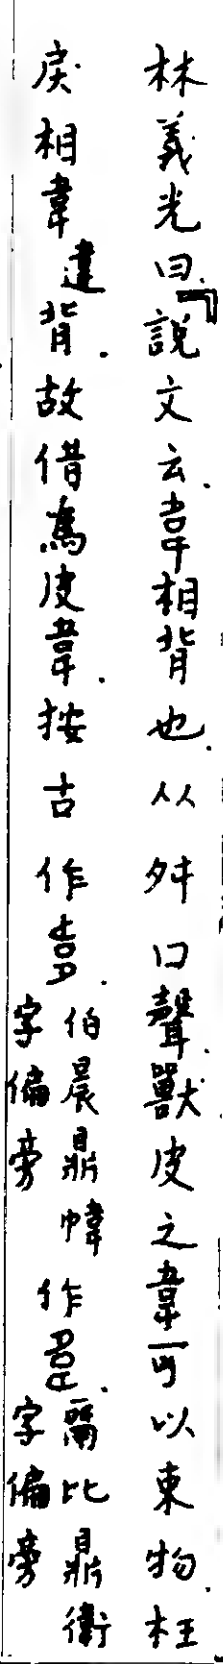 林義光曰.『說文云.韋相背也.从舛口聲.獸皮之韋可以束物.枉
戾相韋違背.故借為皮韋.按古作.伯晨鼎幃字偏旁作.鬲比鼎衛字偏旁